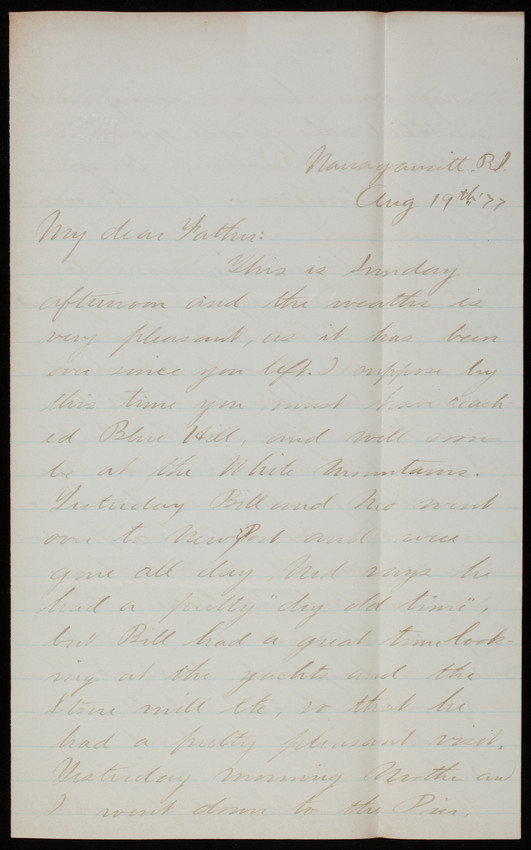 Narragansett. R.I.
Aug 19th '77
My dear Father:
This is Sunday
afternoon and the weather is
very pleasant, as it has been
ever since you left. I suppose by
this time you must have reach
ed Blue Hill, and will soon
be at the White Mountains.
Yesterday Bill and Ned went
over to NewPort and were
gone all day. Ned says he
had a pretty "dry old time",
but Bill had a great time look-
ing at the yachts and the
Stone mill etc, so that he
had a pretty pleasant visit.
Yesterday morning Mother and
I went down to the Pier.